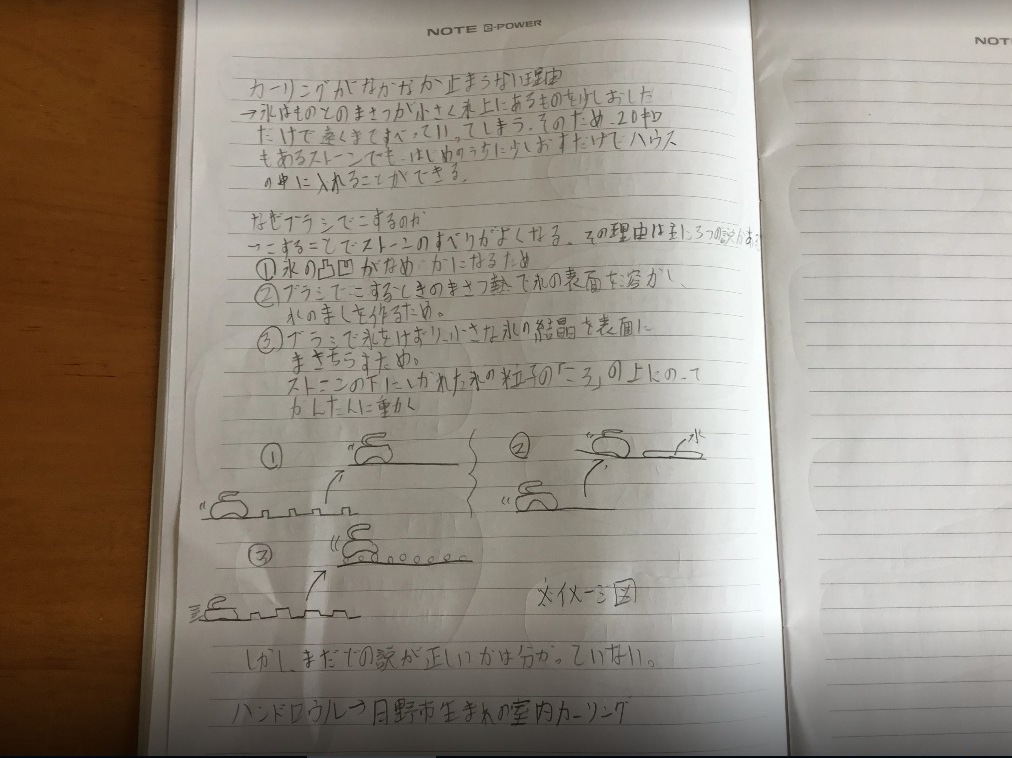 NOTE G-POWER
NOT
カーリングがなかなか止まらない理由
→氷はものとのまさつが小さく氷上にあるものを少しおした
だけで遠くまですべっていってしまう。そのため、20キロ
もあるストーンでも、はじめのうちに少しおすだけでハウス
の中に入れることができる。
なぜブラシでこするのか
→こすることでストーンのすべりがよくなる。その理由は主に3つの説があ
① 氷の凸凹がなめらかになるため
② ブラシでこするときのまさつ熱で氷の表面を溶かし、
水のまくを作るため。
③ ブラシで氷をけずり、小さな氷の結晶を表面に
まきちらすため。
ストーンの下にしかれた氷の粒子の「ころ」の上にのって
かんたんに動く
① ② 水
③
※イメージ図
しかし、まだどの説が正しいかは分かっていない。
ハンドロウル→日野市生まれの室内カーリング